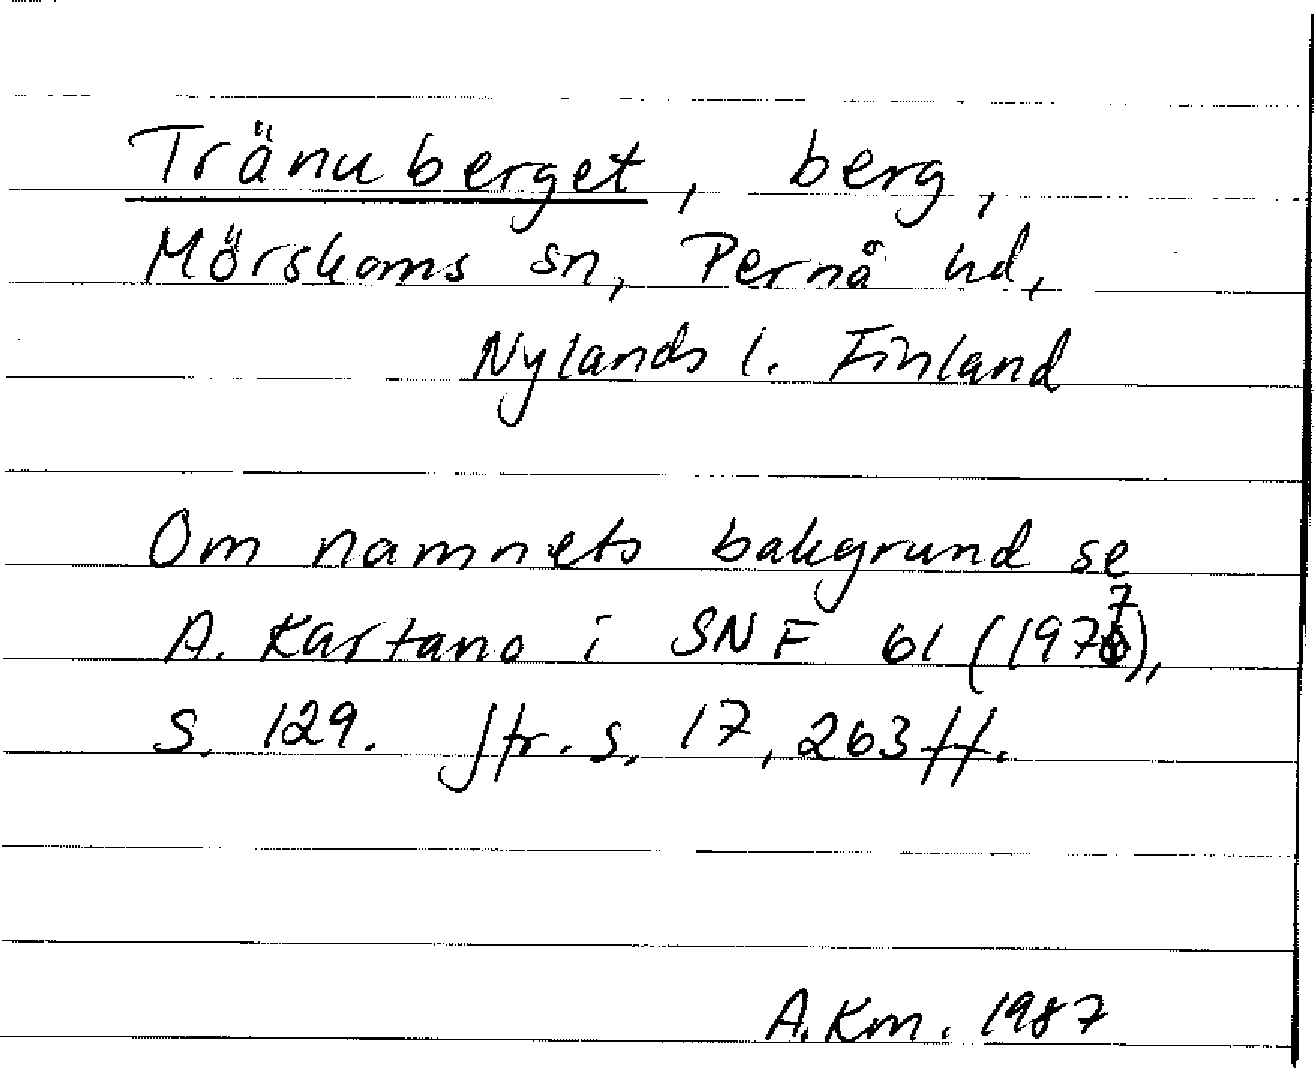 Tränuberget, berg,
Mörskoms sn, Pernå hd,
Nylands l. Finland
Om namnets bakgrund se
A. Kartano i SNF 61 (1977),
s. 129. Jfr. s. 17, 263 ff.
A. Km. 1987